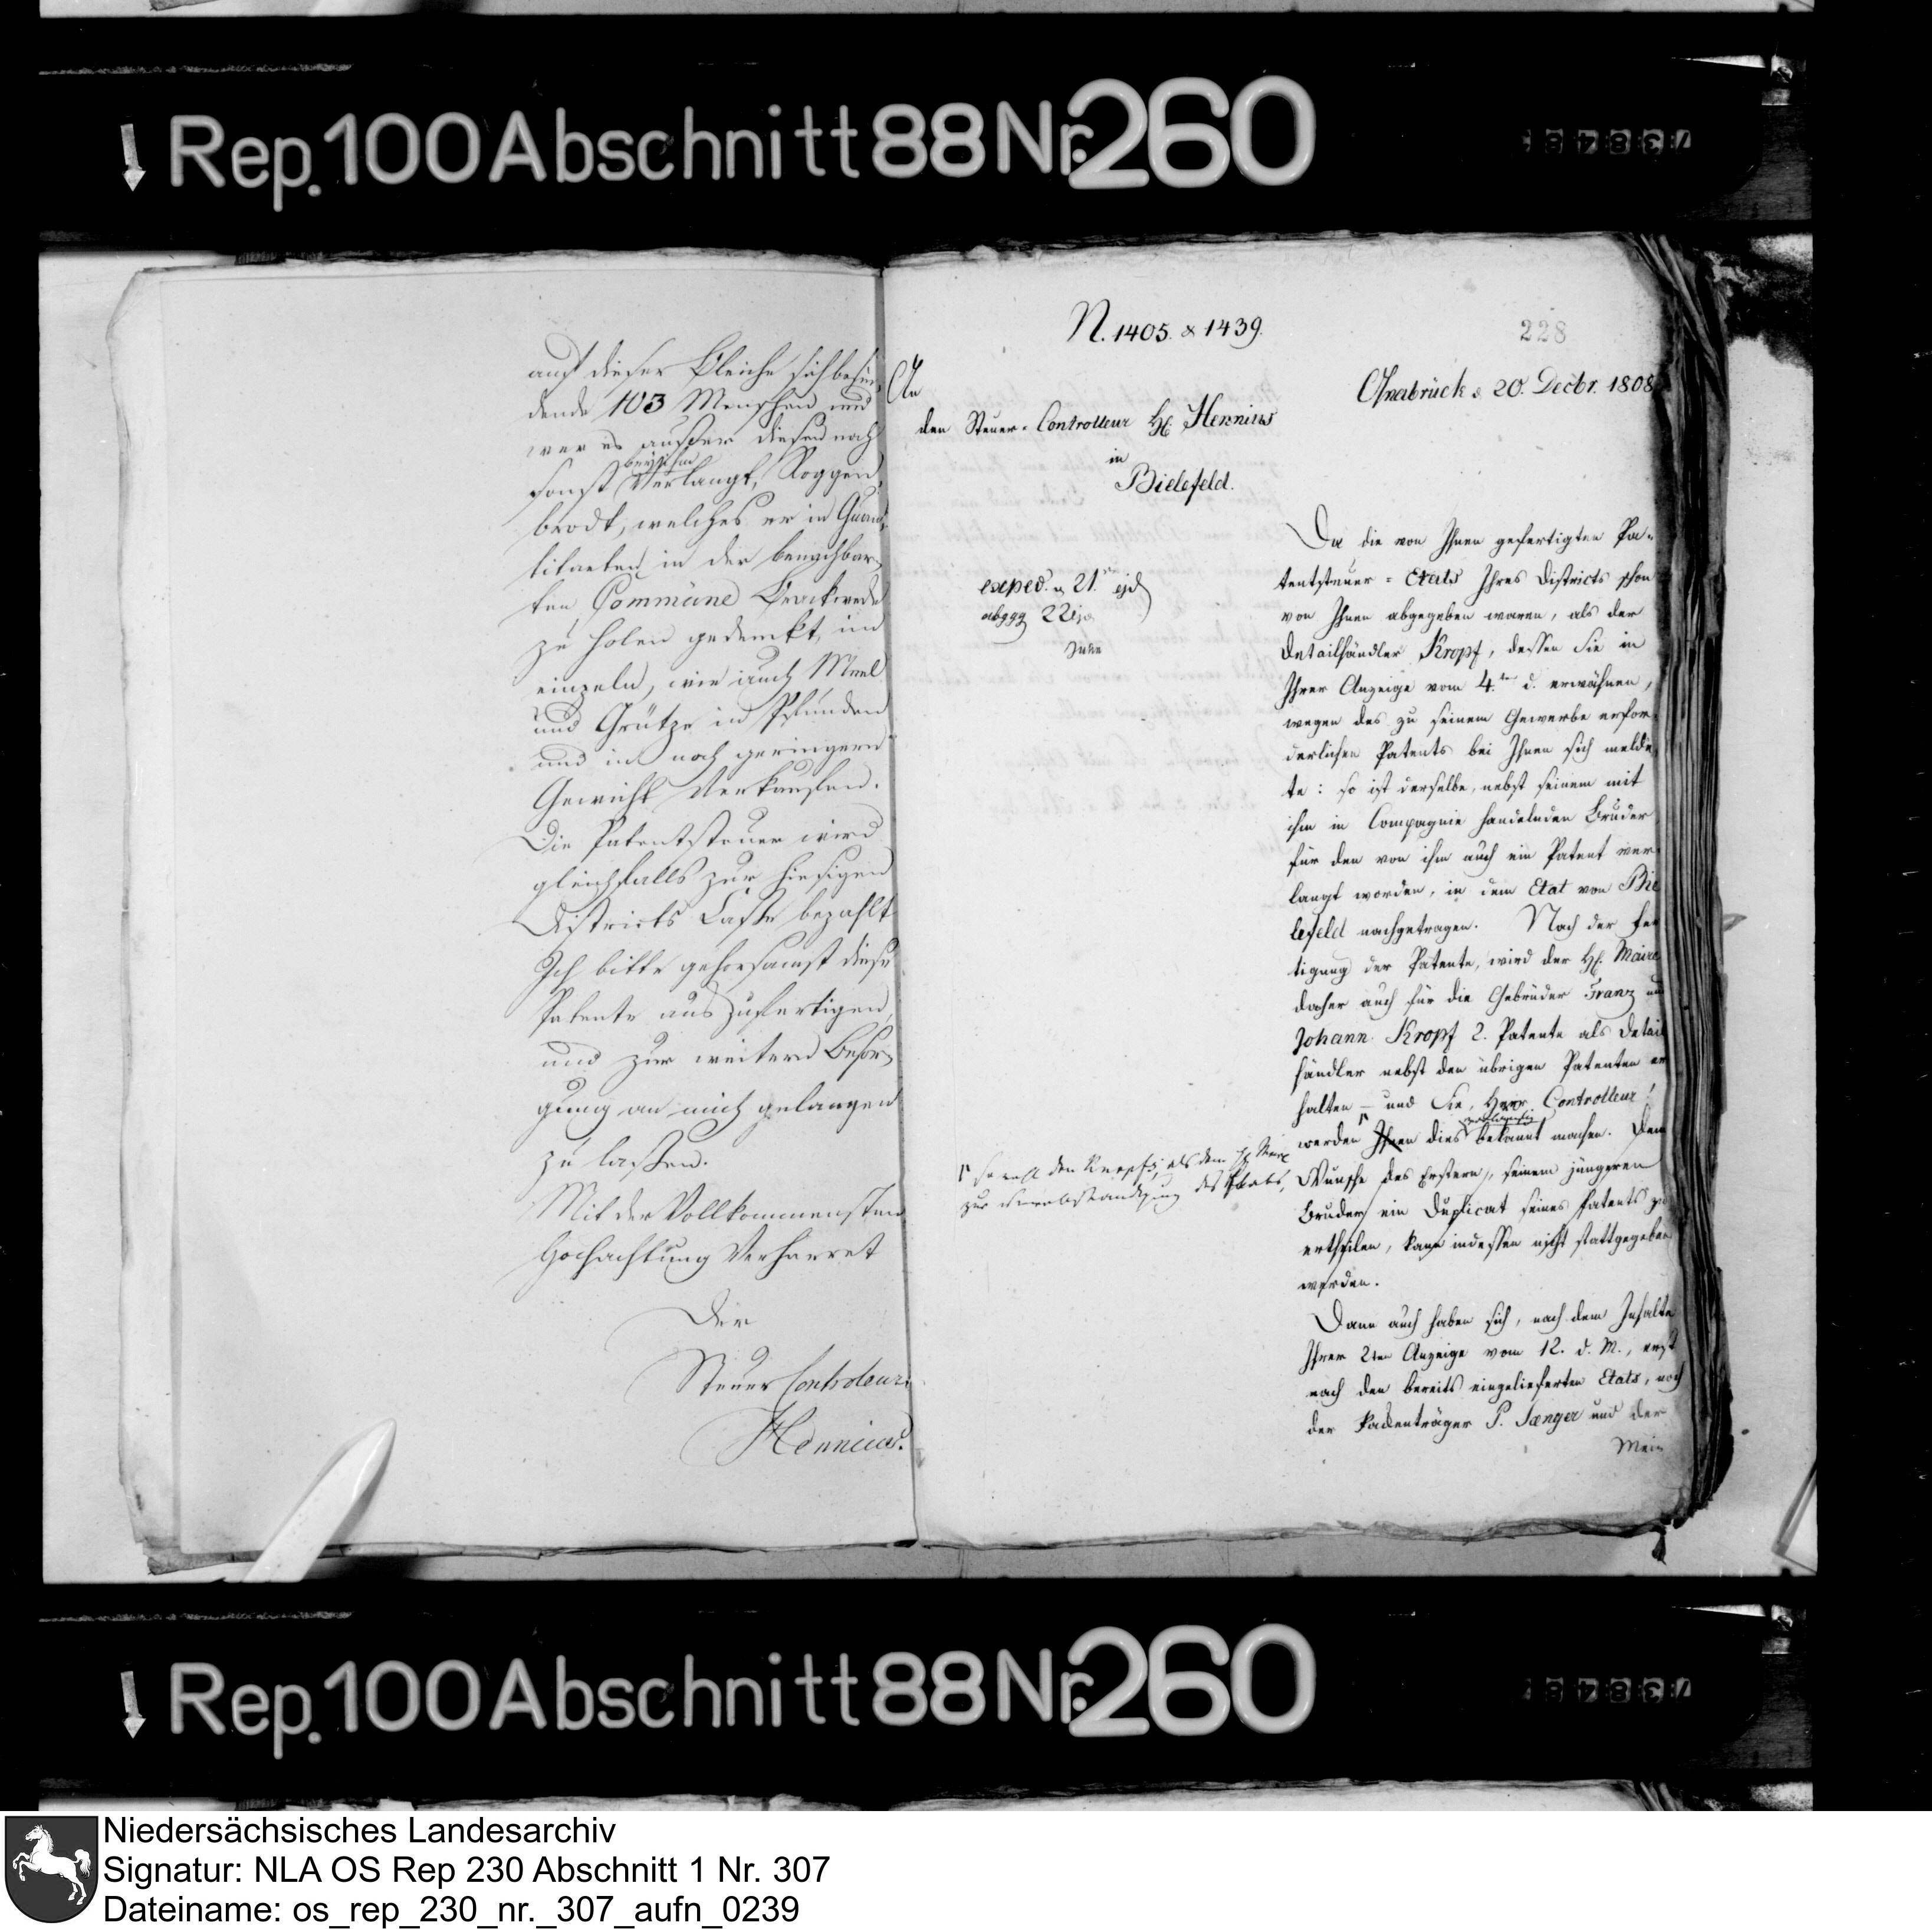 Rep. 100 Abschnitt 88 Nr. 260
auf dieser Bleiche sich befin-
dende 103 Menschen und
wer es außer diesen noch
sonst verlangt, Roggen-
brodt, welches er in Quan-
titaeten in der benachbar-
ten Commüne Brackwede
zu holen gedenkt, im
einzeln, wie auch Meel
und Grütze in Pfunden
und in noch geringern
Gewicht verkaufen.
Die Patentsteuer wird
gleichfalls zur hiesigen
Districts Casse bezahlt
Ich bitte gehorsamst diese
Patente auszufertigen,
und zur weitern Besor-
gung an mich gelangen
zu lassen.
Mit der Vollkommensten
Hochachtung Verharret
Der
Steuer Controleur.
Hennius.
N. 1405. & 1439.
228
An
den Steuer-Controlleur H. Hennius
in
Bielefeld.
Osnabrück d. 20. Decbr. 1808
exped. d. 21. ejd
abggg 22 ejd
Da die von Ihnen gefertigten Pa-
tentsteuer-Etats Ihres Districts schon
von Ihnen abgegeben waren, als der
Detailhändler Kropf, dessen Sie in
Ihrer Anzeige vom 4.ten d. erwähnen,
wegen des zu seinem Gewerbe erfor-
derlichen Patents bei Ihnen sich melde-
te: so ist derselbe, nebst seinem mit
ihm in Compagnie handelnden Bruder
für den von ihm auch ein Patent ver-
langt worden, in dem Etat von Bie
lefeld nachgetragen. Nach der Fer
tigung der Patente, wird der H. Maire
daher auch für die Gebrüder Franz und
Johann Kropf 2. Patente als Detail
händler nebst den übrigen Patenten er
halten – und Sie, Herr Controlleur!
vorläufig
werden Ihnen dies bekannt machen. Dem
sowohl den Kropfs, als dem H. Maire
zur Vervollständigung des Etats,
Wunsche des Erstern, seinem jüngeren
Bruder ein Duplicat seines Patents zu
ertheilen, kann indessen nicht stattgegeben
werden.
Dann auch haben sich, nach dem Inhalte
Ihrer 2ten Anzeige vom 12. d. M., erst
nach den bereits eingelieferten Etats, noch
der Packenträger P. Saenger und der
Mein
Rep. 100 Abschnitt 88 Nr. 260
Niedersächsisches Landesarchiv
Signatur: NLA OS Rep 230 Abschnitt 1 Nr. 307
Dateiname: os_rep_230_nr._307_aufn_0239